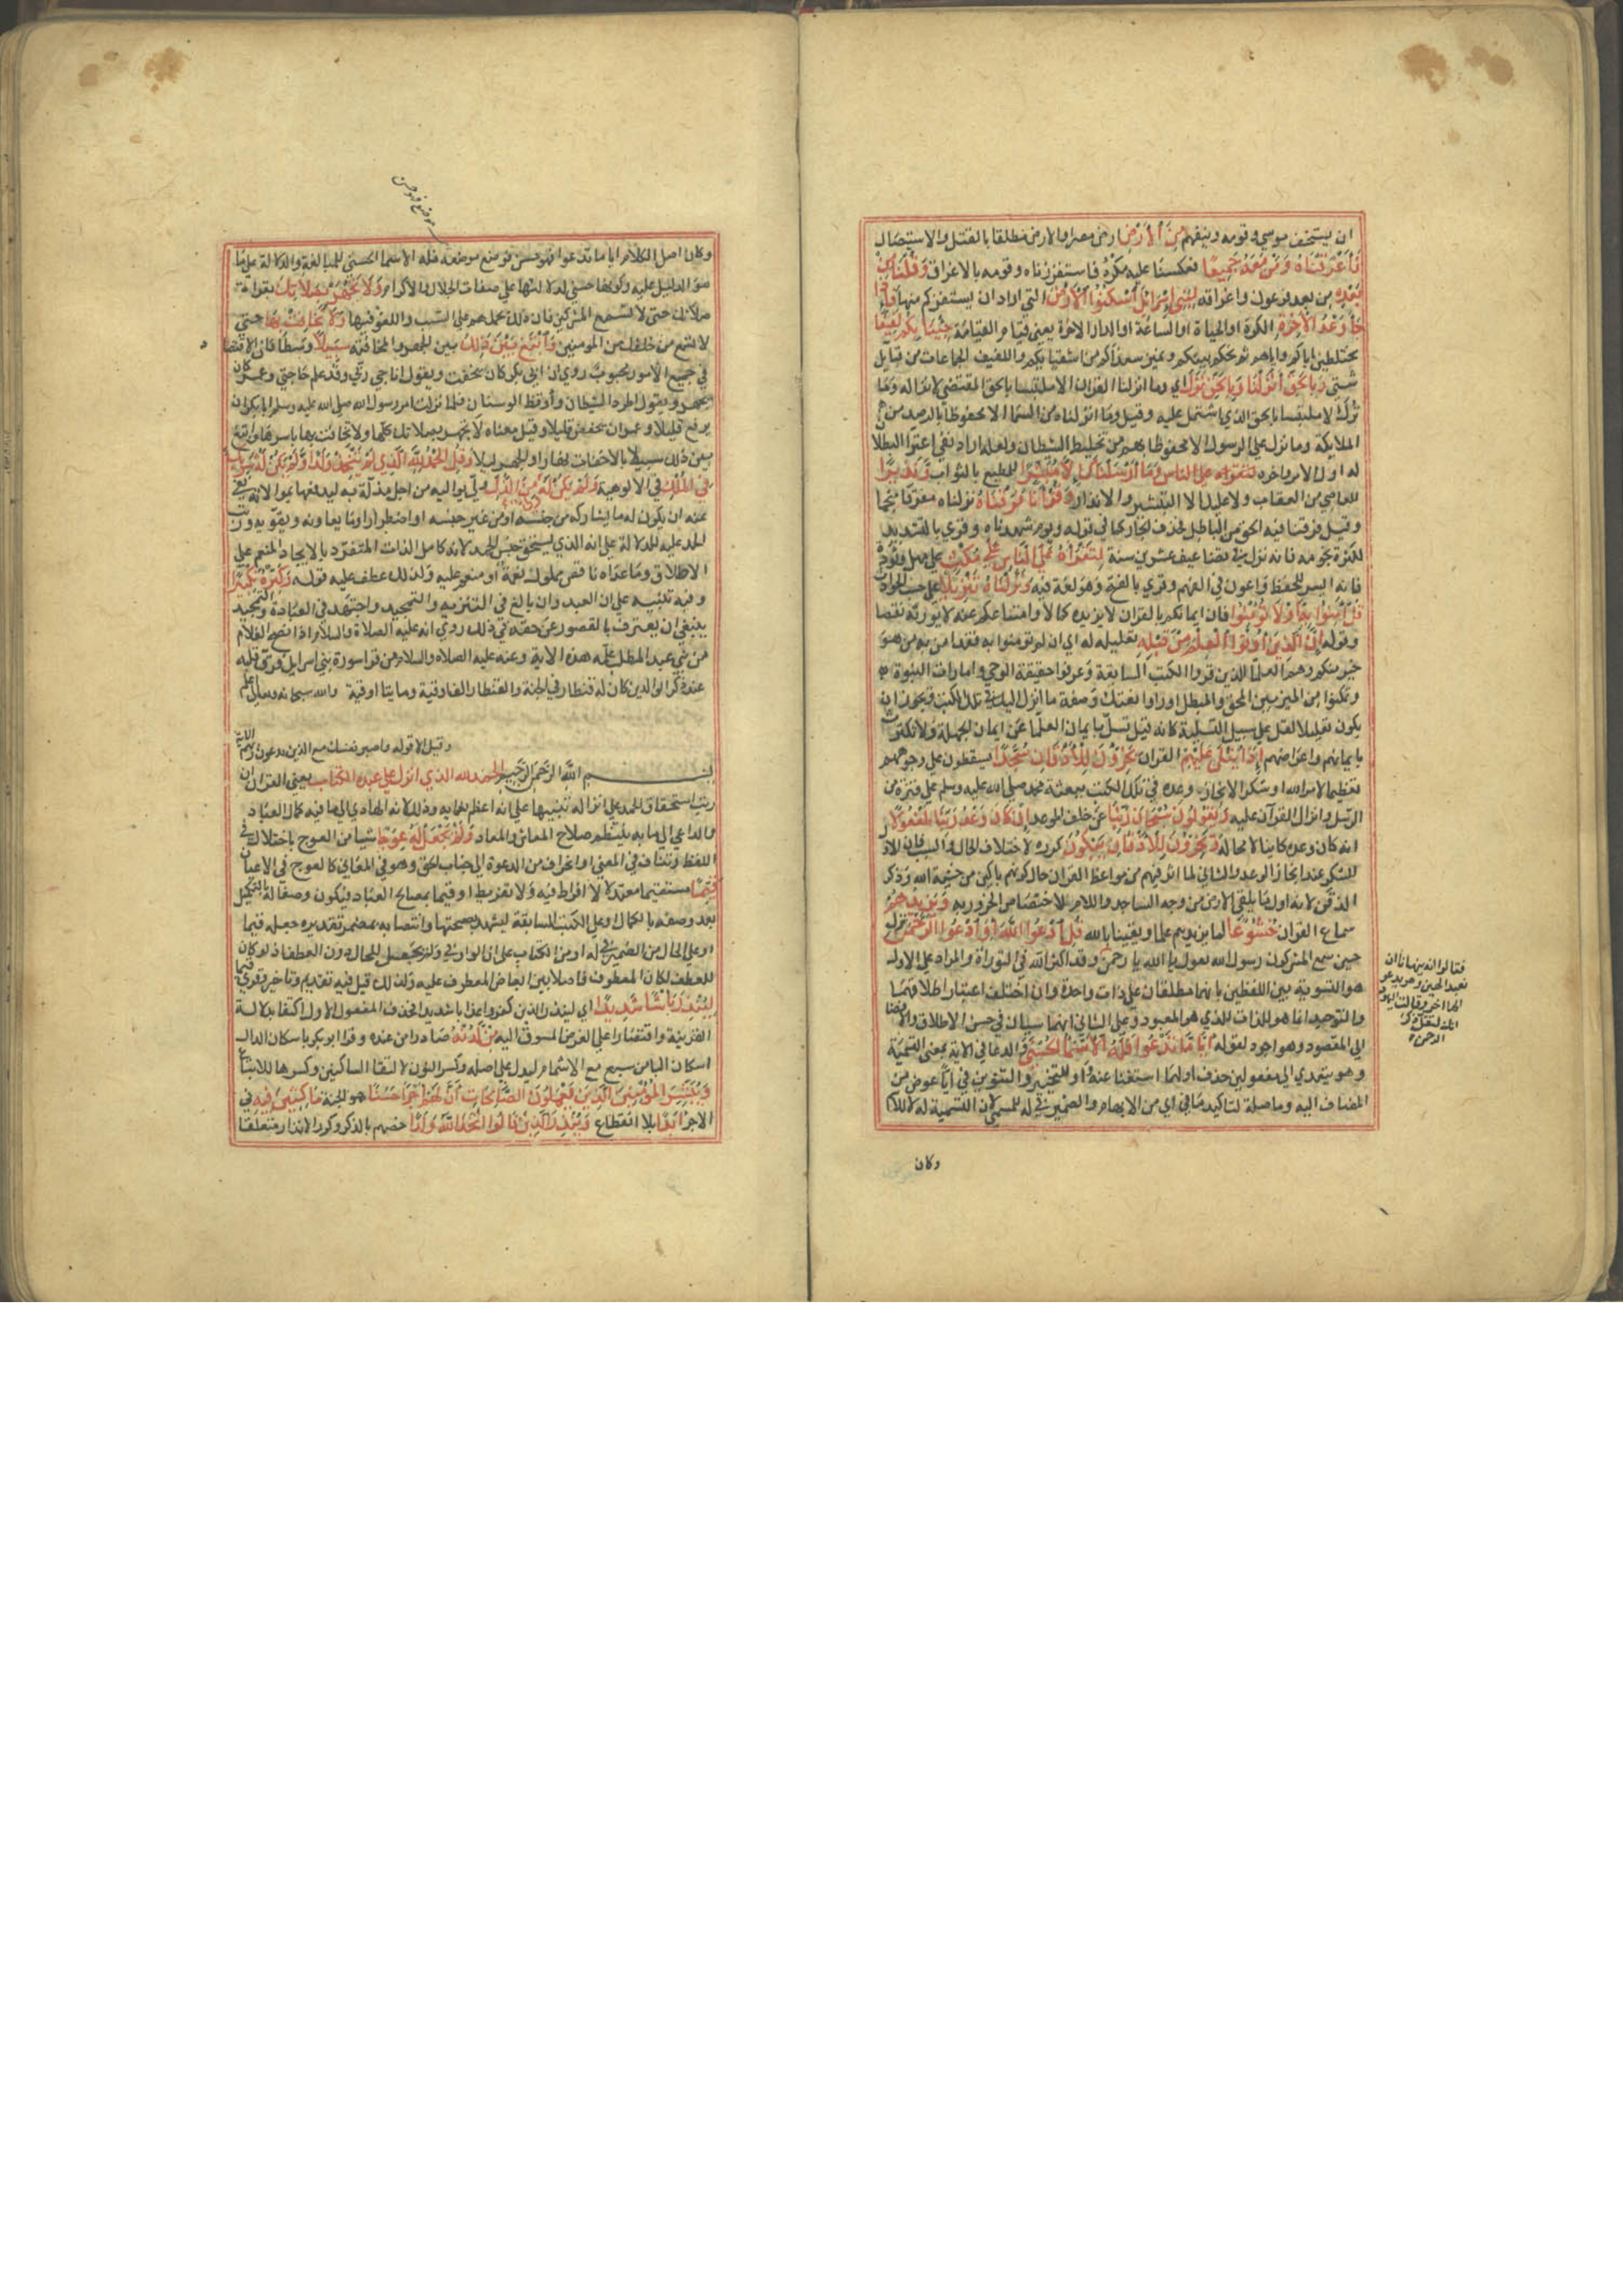 ان يستخف موسي وقومه وينفيهم من الارض ارض مصر او الارض مطلقا بالقتل والاستيصال
فاغرقناه ومن معه جميعا فعكسنا عليه مكره فاستفززناه وقومه بالاغراق وقلنا من
بعده من بعد فرعون واغراقه لبني اسرايل اسكنوا الارض التي اراد ان يستفزكم منها فاذا
جا وعد الاخرة الكرة او الحياة او الساعة او الدار الاخرة يعني قيام القيامة جينا بكم لفيفا
مختلطين اياكم واياهم ثم نحكم بينكم ونميز سعداكم من اشقيايكم واللفيف الجماعات من قبايل
شتي وبالحق انزلناه وبالحق نزل اي وما انزلنا القران الا ملتبسا بالحق المقتضي لانزاله وما
نزل الا ملتبسا بالحق الذي اشتمل عليه وقيل وما انزلناه من السما الا محفوظا بالرصد من
الملايكة وما نزل علي الرسول الا محفوظا بهم من تخليط الشيطان ولعله اراد به نفي اعتوا البطلا
له اول الامر واخره وما ارسلناك الا مبشرا للمطيع بالثواب ونذيرا
للعاصي من العقاب ولا عليك الا التبشير والانذار وقرانا فرقناه نزلناه مفرقا منجما
وقيل فرقنا فيه الحق من الباطل فحذف الجار كما في قوله ويوم شهدناه وقري بالتشديد
لكثرة نجومه فانه نزل في تضاعيف عشرين سنة لتقراه علي الناس علي مكث علي مهل وتؤدة
فانه ايسر للحفظ واعون في الفهم وقري بالفتح وهو لغة فيه ونزلناه تنزيلا علي حسب الحوادث
قل امنوا به او لا تؤمنوا فان ايمانكم بالقران لا يزيده كمالا وامتناعكم عنه لا يورثه نقصا
وقوله ان الذين اوتوا العلم من قبله تعليل له اي ان لم تومنوا به فقد امن به من هو
خير منكم وهم العلما الذين قروا الكتب السابقة وعرفوا حقيقة الوحي وامارات النبوة
وتمكنوا من الميز بين المحق والمبطل اوراوا نعتك وصفة ما انزل اليك في تلك الكتب ويجوز ان
يكون تعليلا لقل علي سبيل التسلية كانه قيل تسل بايمان العلما عن ايمان الجهلة ولا تكترث
بايمانهم واعراضهم اذا يتلي عليهم القران يخرون للاذقان سجدا يسقطون علي وجوههم
تعظيما لامر الله او شكرا لانجاز وعده في تلك الكتب ببعثة محمد صلي الله عليه وسلم علي فترة من
الرسل وانزال القرآن عليه ويقولون سبحان ربنا عن خلف الموعد ان كان وعد ربنا لمفعولا
انه كان وعده كاينا لا محالة ويخرون للاذقان يبكون كرره لاختلاف الحال والسبب فان الاول
للشكر عند انجاز الوعد والثاني لما اثر فيهم من مواعظ القران حال كونهم باكين من خشية الله وذكر
الذقن لانه اول ما يلقي الارض من وجه الساجد واللام للاختصاص الخرور به ويزيدهم
سماع القران خشوعا لما يزيدهم علما ويقينا بالله قل ادعوا الله او ادعوا الرحمن نزل
حين سمع المشركون رسول الله يقول يا الله يا رحمن وقد اكثر الله في التوراة والمراد علي الاول
هو التسوية بين اللفظين بانهما مطلقان علي ذات واحدة وان اختلف اعتبار اطلاقهما
والتوحيد انما هو للذات الذي هو المعبود وعلي الثاني انهما سيان في حسن الاطلاق والافضا
الي المقصود وهو اجود لقوله ايا ما تدعوا فله الاسما الحسني والدعا في الاية بمعني التسمية
وهو يتعدي الي مفعولين حذف اولهما استغنا عنه واو للتخيير والتنوين في ايا عوض من
المضاف اليه وما صلة لتاكيد ما في اي من الابهام والضمير في له للمسمي لان التسمية له لا للا
فقالوا انه ينهانا ان
نعبد الهين وهو يدعو
الها اخر وقالت اليهود
انك لتقل ذكر
الرحمن
وكان
موضع فهو حسن
وكان اصل الكلام ايا ما تدعوا فهو حسن فوضع موضعه فله الاسما الحسني للمبالغة والدلالة علي ما
هو الدليل عليه وكونها حسني لدلالتها علي صفات الجلال والاكرام ولا تجهر بصلاتك بقراة
صلاتك حتي لا تسمع المشركين فان ذلك يحملهم علي السب واللغو فيها ولا تخافت بها حتي
لا تسمع من خلفك من المومنين وابتغ بين ذلك بين الجهر والمخافتة سبيلا وسطا فان الاقتصا
في جميع الامور محبوب روي ان ابي بكر كان يخفت ويقول اناجي ربي وقد علم حاجتي وعمر كان
يجهر ويقول اطرد الشيطان واوقظ الوسنان فلما نزلت امر رسول الله صلي الله عليه وسلم ابا بكر ان
يرفع قليلا وعمر ان يخفض قليلا وقيل معناه لا تجهر بصلاتك كلها ولا تخافت بها باسرها وابتغ
بين ذلك سبيلا بالاخفات نهارا والجهر ليلا وقل الحمد لله الذي لم يتخذ ولدا ولم يكن له شريك
في الملك في الالوهية ولم يكن له ولي من الذل ولي يواليه من اجل مذلة به ليدفعها بموالاته نفي
عنه ان يكون له ما يشاركه من جنسه او من غير جنسه او اضطرارا وما يعاونه ويقويه ورتب
الحمد عليه للدلالة علي انه الذي يستحق جنس الحمد لانه كامل الذات المتفرد بالايجاد المنعم علي
الاطلاق وما عداه ناقص مملوك نعمة او منعم عليه ولذلك عطف عليه قوله وكبره تكبيرا
وفيه تنبيه علي ان العبد وان بالغ في التنزيه والتمجيد واجتهد في العبادة والتحميد
ينبغي ان يعترف بالقصور عن حقه في ذلك روي انه عليه الصلاة والسلام اذا افصح الغلام
من بني عبد المطلب علمه هذه الاية وعنه عليه الصلاه والسلام من قرا سورة بني اسرايل فرق قلبه
عند ذكر الوالدين كان له قنطار في الجنة والقنطار الف اوقية ومايتا اوقية والله سبحانه وتعالي اعلم
وقيل الا قوله واصبر نفسك مع الذين يدعون ربهم الاية
بسم الله الرحمن الرحيم الحمد لله الذي انزل علي عبده الكتاب يعني القران
رتب استحقاق الحمد علي انزاله تنبيها علي انه اعظم نعمايه وذلك لانه الهادي الي ما فيه كمال العباد
والداعي الي ما به ينتظم صلاح المعاش والمعاد ولم يجعل له عوجا شيا من العوج باختلال في
اللفظ وتناف في المعني او انحراف من الدعوة الي جناب الحق وهو في المعاني كالعوج في الاعيان
قيما مستقيما معتدلا لا افراط فيه ولا تفريط او قيما بمصالح العباد فيكون وصفا له بالتكميل
بعد وصفه بالكمال او علي الكتب السابقة ليشهد بصحتها وانتصابه بمضمر تقديره جعله قيما
او علي الحال من الضمير في له او من الكتاب علي ان الواو في ولم يجعل للحال دون العطف اذ لو كان
للعطف لكان المعطوف فاصلا بين ابعاض المعطوف عليه ولذلك قيل فيه تقديم وتاخير وقري قيما
لينذر باسا شديدا اي لينذر الذين كفروا عذابا شديدا فحذف المفعول الاول اكتفا بدلالة
القرينة واقتصارا علي الغرض المسوق اليه من لدنه صادرا من عنده وقرا ابو بكر باسكان الدال
اسكان البا من سبع مع الاشمام ليدل علي اصله وكسر النون لالتقا الساكنين وكسر الها للاتباع
ويبشر المؤمنين الذين يعملون الصالحات ان لهم اجرا حسنا هو الجنة ماكثين فيه في
الاجر ابدا بلا انقطاع وينذر الذين قالوا اتخذ الله ولدا خصهم بالذكر وكرر الانذار متعلقا